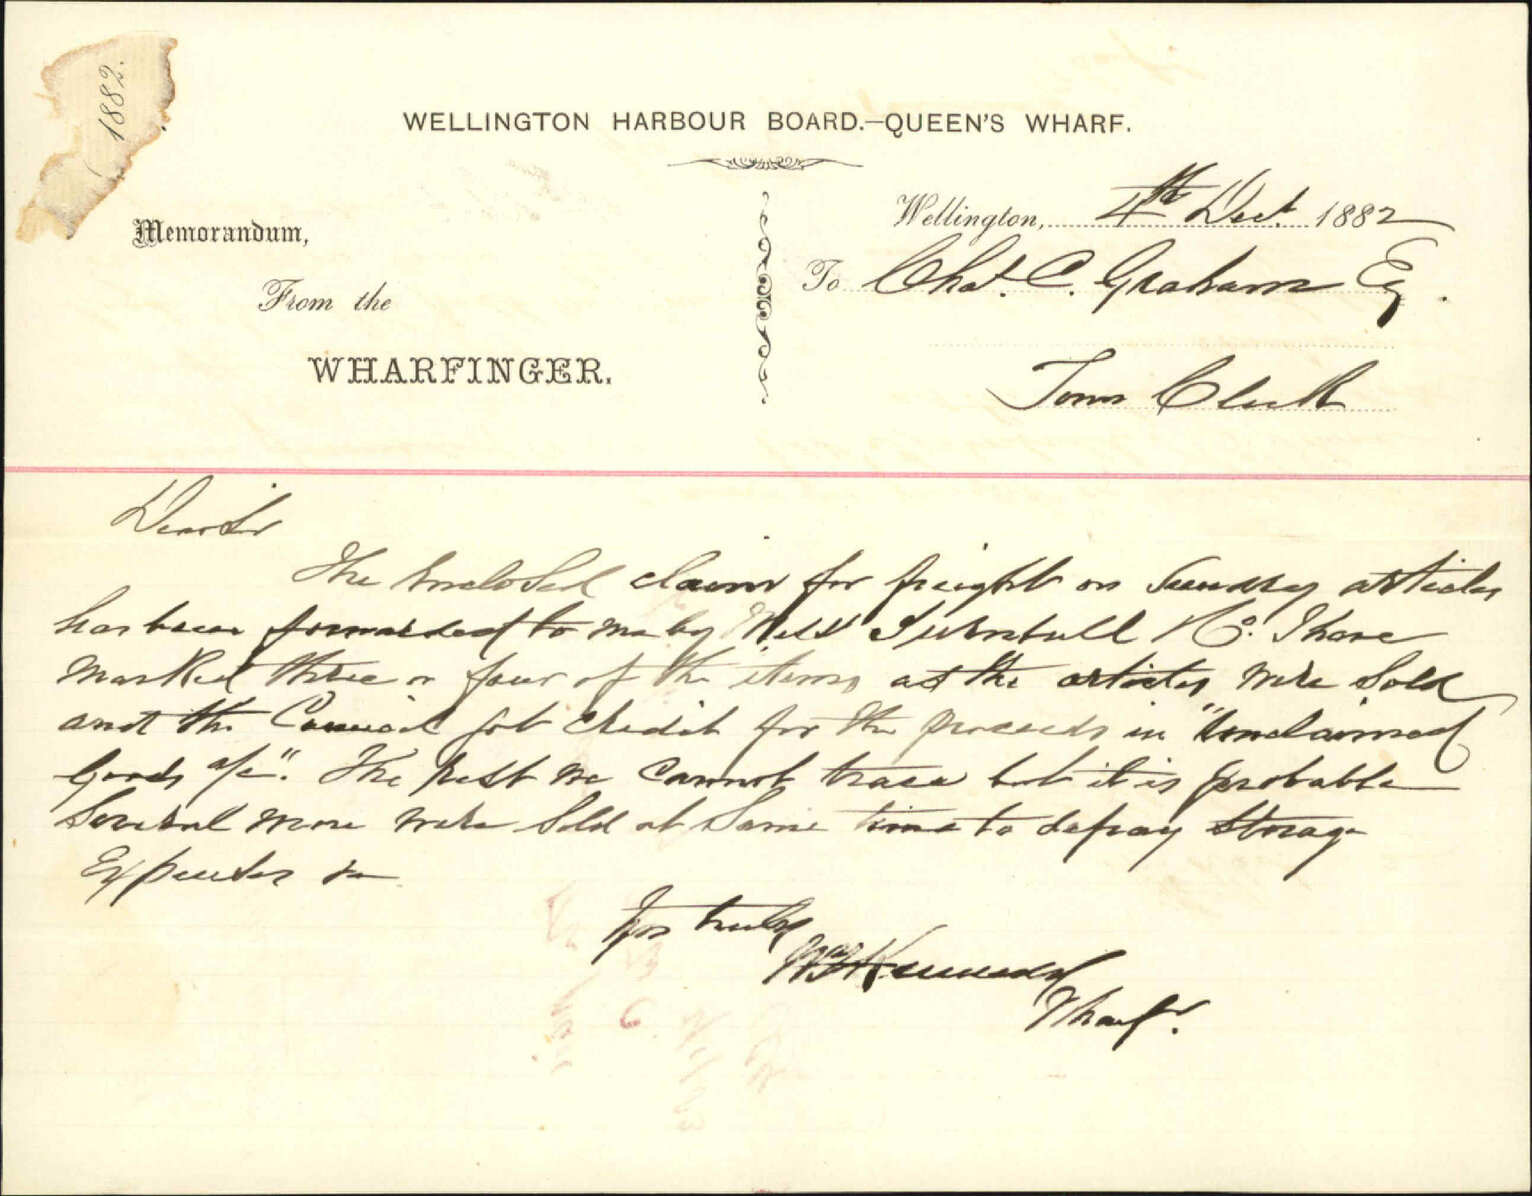 1882.
WELLINGTON HARBOUR BOARD.—QUEEN'S WHARF.
Memorandum,
From the
WHARFINGER.
Wellington, 4th Dect. 1882
To Chas. C. Graham Esq.
Town Clerk
Dear Sir
The enclosed claim for freight on Sundry articles
has been forwarded to me by Mess Turnbull & Co. I have
marked three or four of the items as the articles were sold
and the Council got credit for the proceeds in "Unclaimed
Goods a/c". The rest we cannot trace but it is probable
several more were sold at same time to defray storage
Expenses &c
Yrs truly
Kennedy
Wharfr.